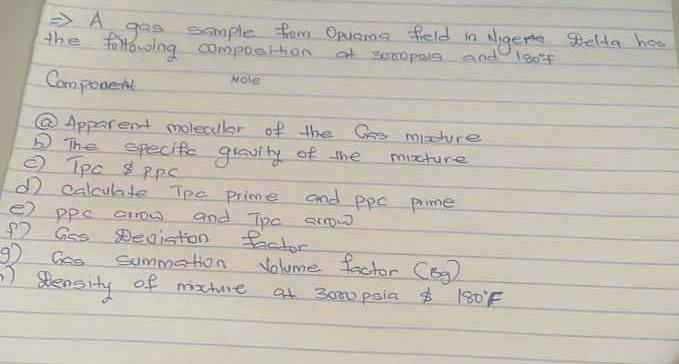 ⇒ A gas sample from Opuama field in Nigeria Delta has
the following composition at 3000psia and 180°F
Component Mole
@ Apparent molecular of the Gas mixture
b) The specific gravity of the mixture
c) Tpc $ ppc
d) calculate Tpc prime and ppc prime
e) ppc arrow and Tpc arrow
f) Gas Deviation factor
g) Gas summation Volume factor (Bg)
) Density of mixture at 3000psia $ 180°F